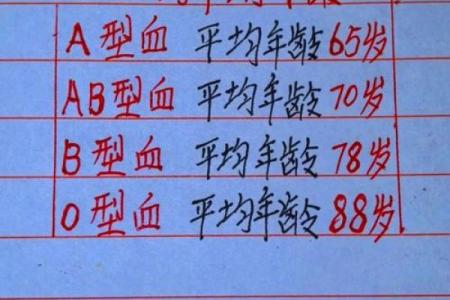 A型血 平均年龄65岁
AB型血 平均年龄70岁
B型血 平均年龄78岁
O型血 平均年龄88岁